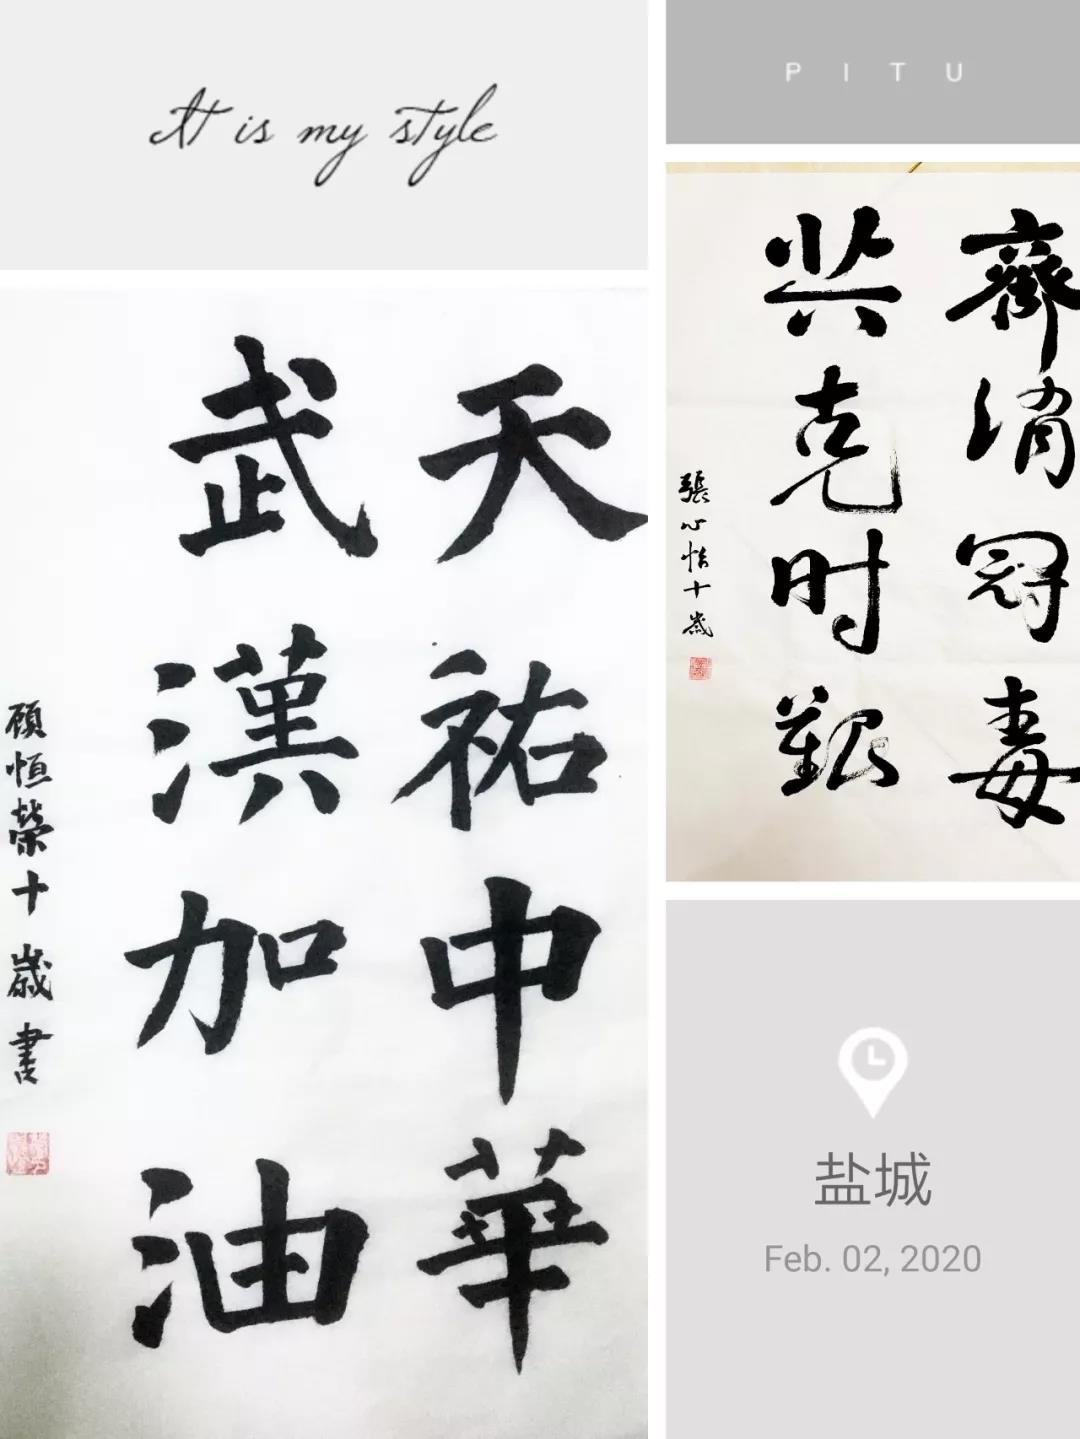 It is my style
PITU
天祐中華
武漢加油
顾恒榮十歲書
齊消冠毒
共克时艱
張心悟十歲
盐城
Feb. 02, 2020